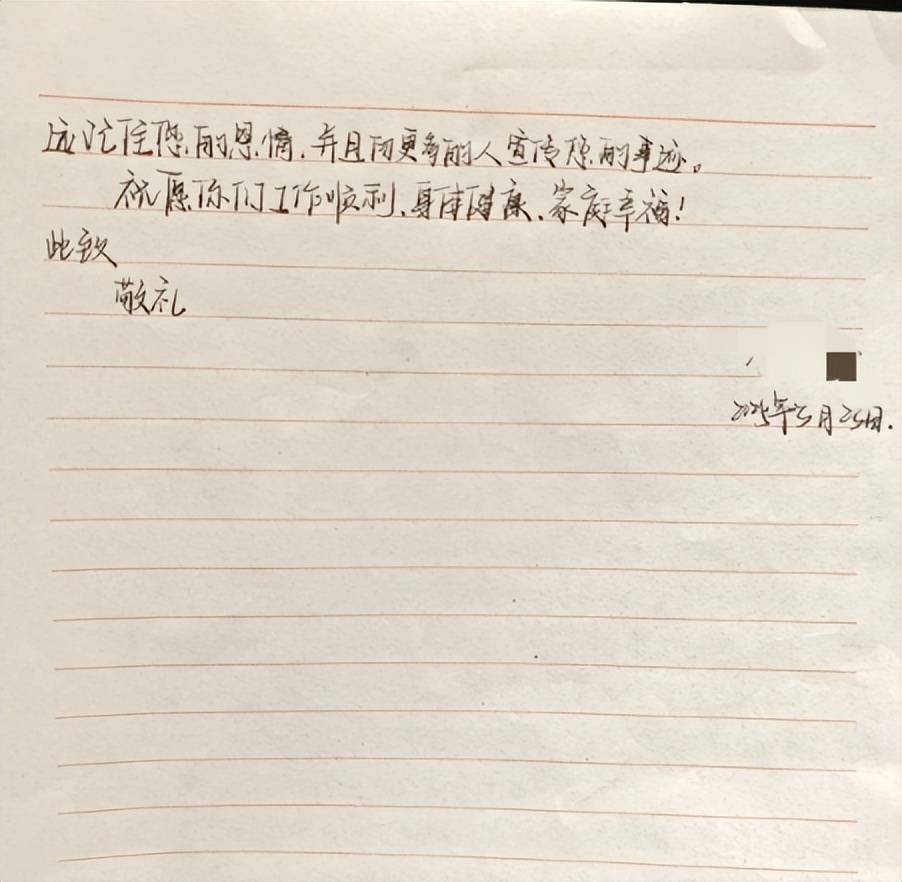 记住您的恩情,并且向更多的人宣传您的事迹。
祝愿你们工作顺利、身体健康、家庭幸福!
此致
敬礼
2025年3月25日.